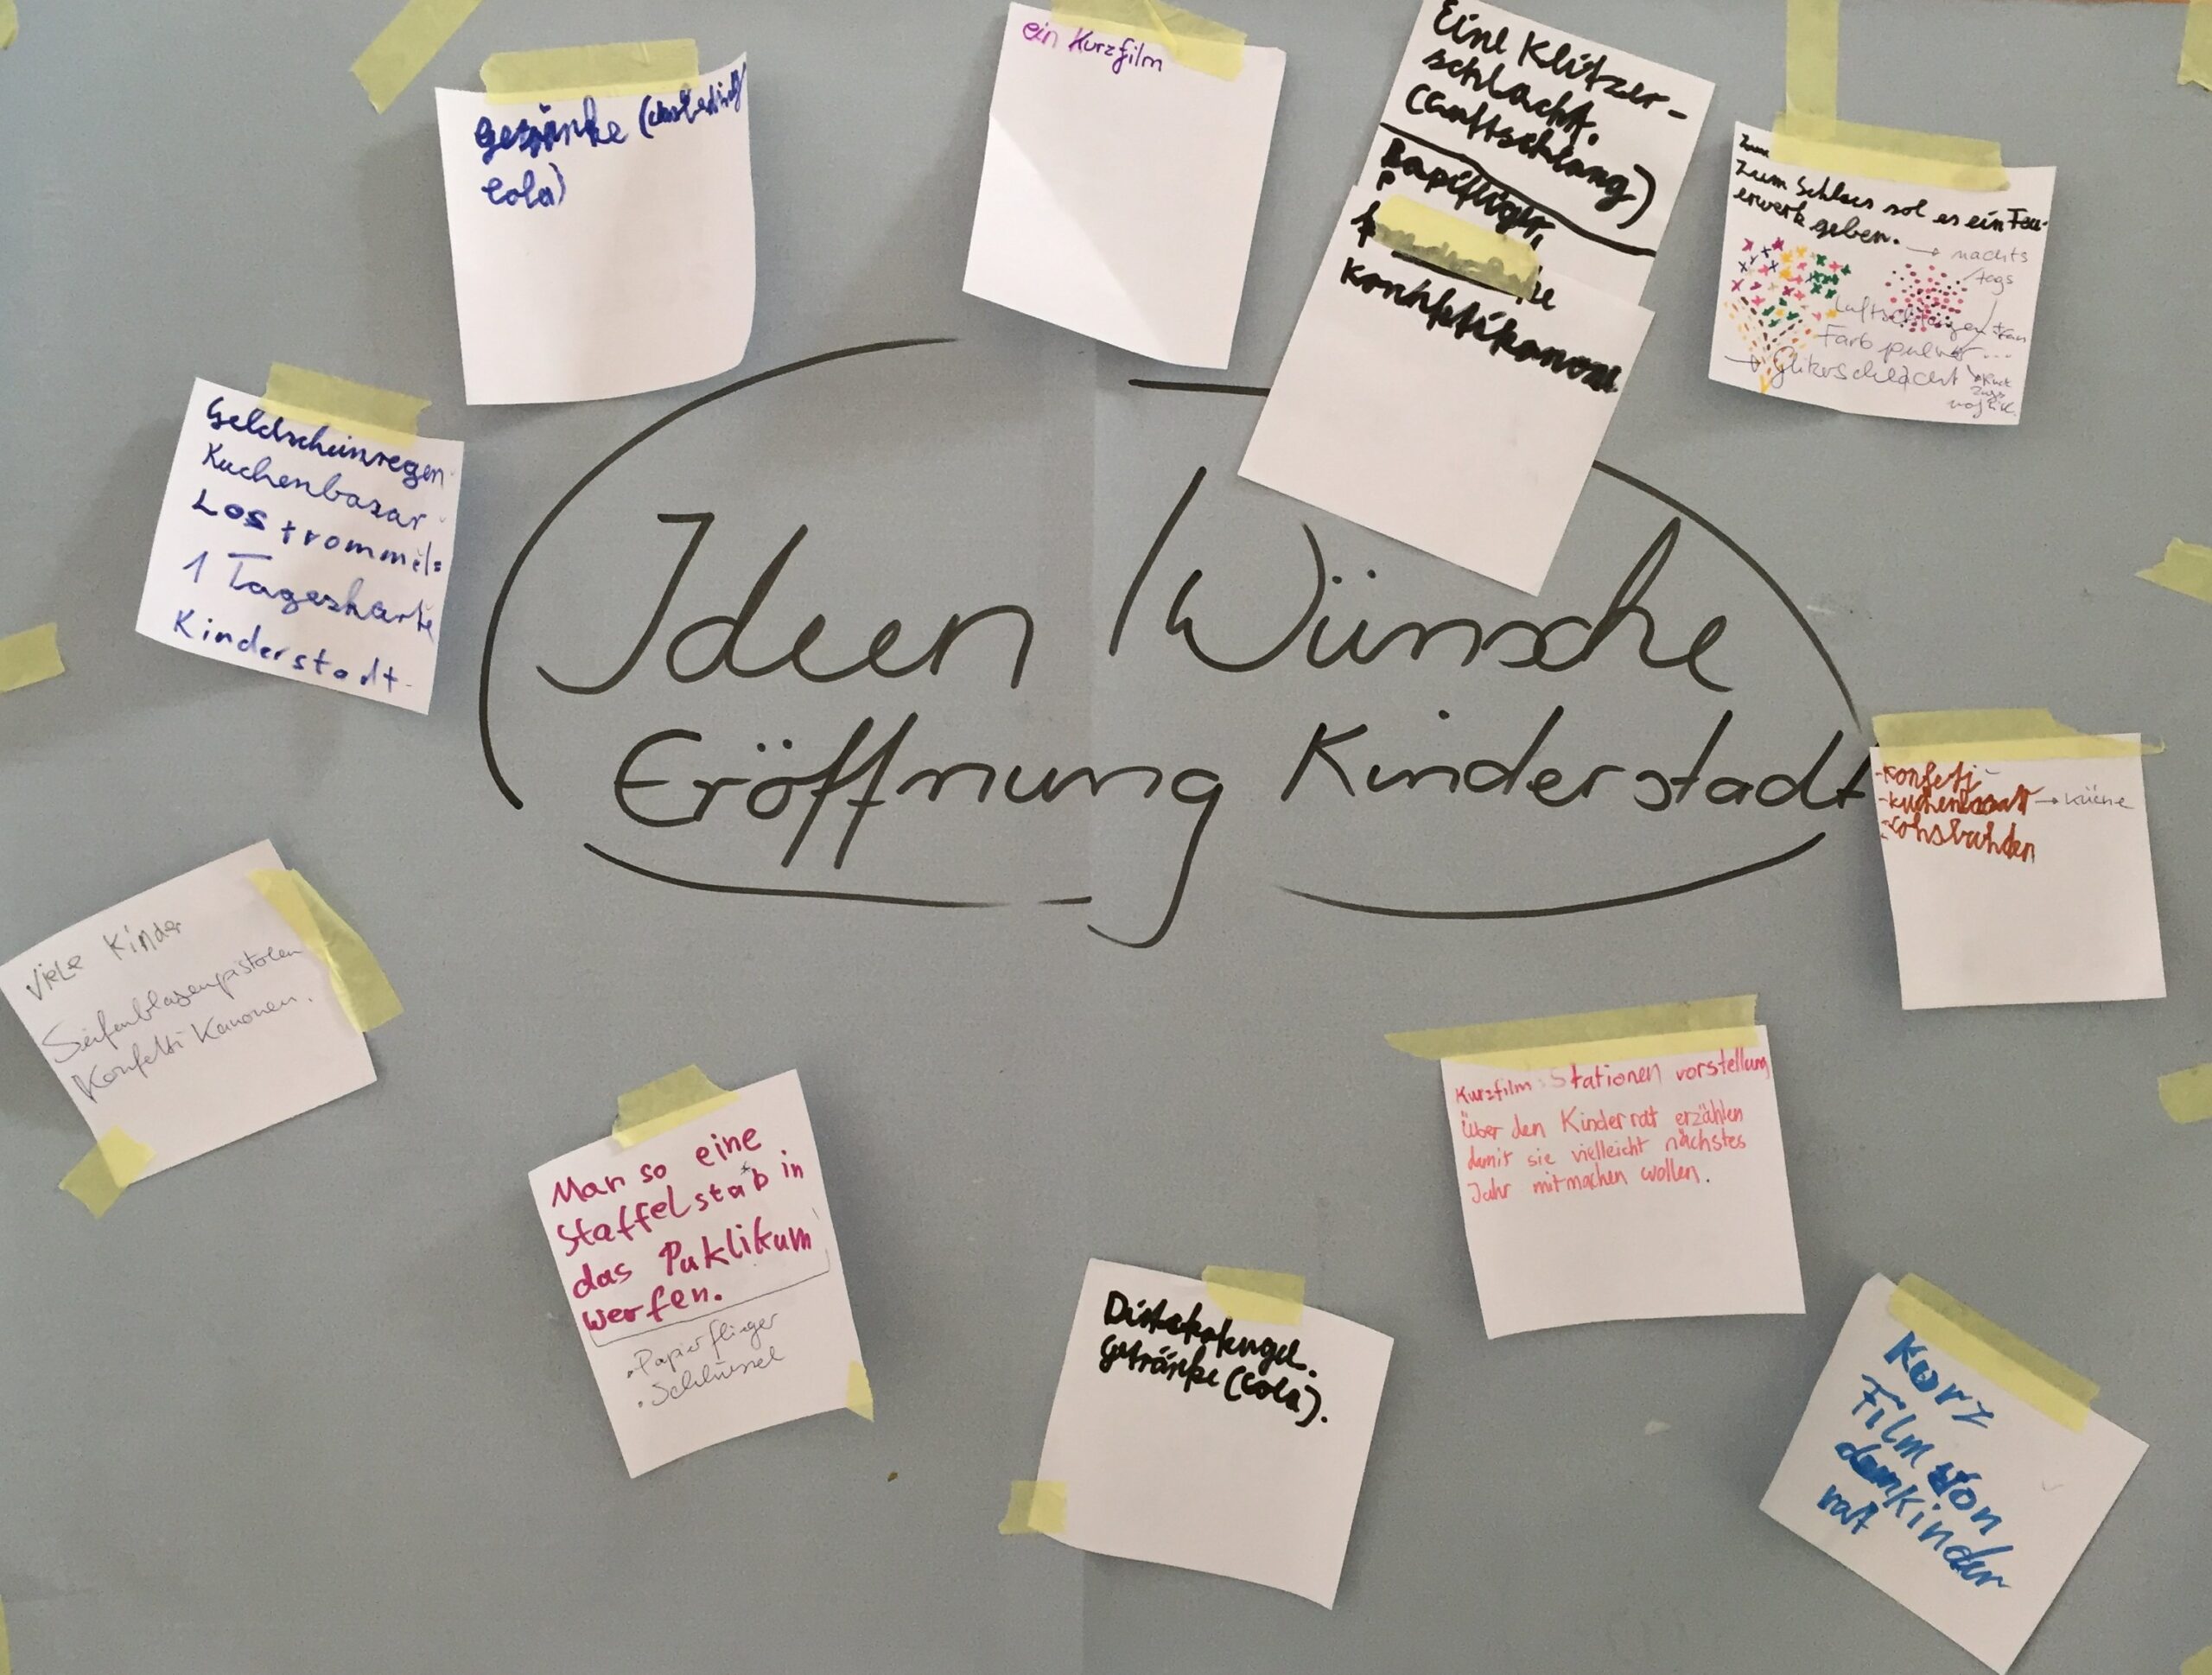 Ideen / Wünsche
Eröffnung Kinderstadt
Getränke (
Cola)
ein Kurzfilm
Eine Klitzer-
schlacht.
(Luftschlang)
Bapifliger,
Konfetikanone
Zum
Zum Schluss sol es ein Feu-
erwerk geben.
→ nachts
tags
Luftschlangen
Farbpulver ...
→ Glitzerschlacht
Geldscheinregen
Kuchenbasar
Lostrommel:
1 Tageskarte
Kinderstadt-
-Konfeti-
-kuchenbasar → Küche
Viele Kinder
Seifenblasenpistolen
Konfetti Kanonen.
Man so eine
Staffelstab in
das Puklikum
werfen.
. Papierflieger
. Schlüssel
Kurzfilm: Stationen vorstellung
Über den Kinderrat erzählen
damit sie vielleicht nächstes
Jahr mitmachen wollen.
Getränke (Cola).
Kurz
Film von
dem Kinder
rat